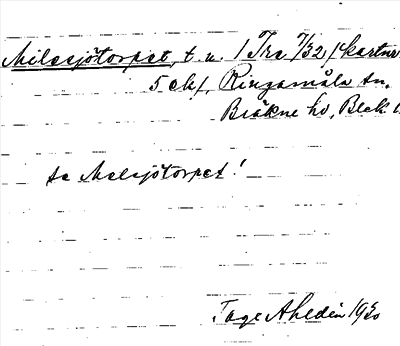 Milasjötorpet, t. u. 1 Tra 7/32, (kartnr
5 ek), Ringamåla sn,
Bräkne hd, Blek l.
se Malsjötorpet!
Tage Ahldén 1930